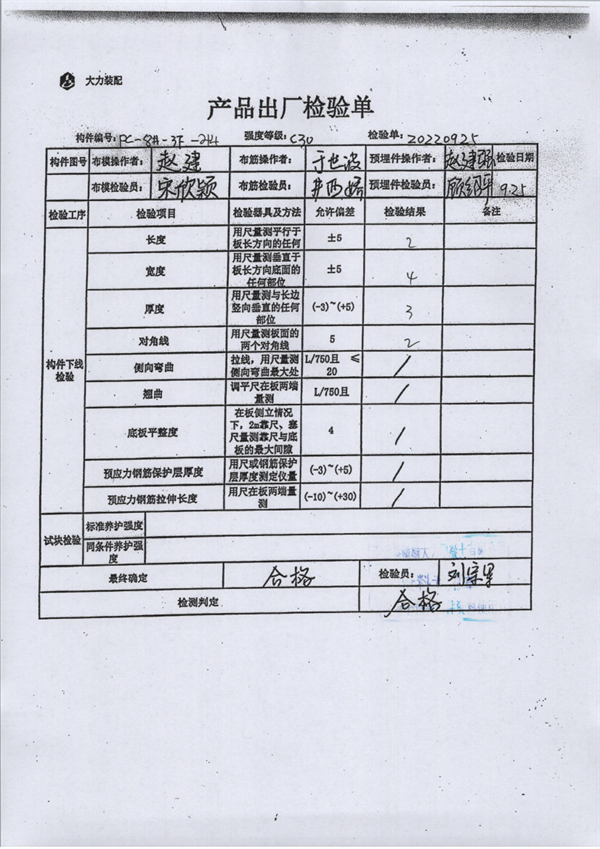 大力装配
产品出厂检验单
构件编号: PC-8#-3F-214 强度等级: C30 检验单: 20220925
构件图号 布模操作者: 赵建 布筋操作者: 于世波 预埋件操作者: 赵建强 检验日期
布模检验员: 宋欣颖 布筋检验员: 预埋件检验员: 9.25
检验工序 检验项目 检验器具及方法 允许偏差 检验结果 备注
构件下线检验
长度 用尺量测平行于板长方向的任何 ±5 2
宽度 用尺量测垂直于板长方向底面的任何部位 ±5 4
厚度 用尺量测与长边竖向垂直的任何部位 (-3)~(+5) 3
对角线 用尺量测板面的两个对角线 5 2
侧向弯曲 拉线,用尺量测侧向弯曲最大处 L/750且 ≤20 /
翘曲 调平尺在板两端量测 L/750且 /
底板平整度 在板侧立情况下,2m靠尺、塞尺量测靠尺与底板的最大间隙 4 /
预应力钢筋保护层厚度 用尺或钢筋保护层厚度测定仪量 (-3)~(+5) /
预应力钢筋拉伸长度 用尺在板两端量测 (-10)~(+30) /
试块检验 标准养护强度
同条件养护强度
最终确定 合格 检验员:
检测判定 合格